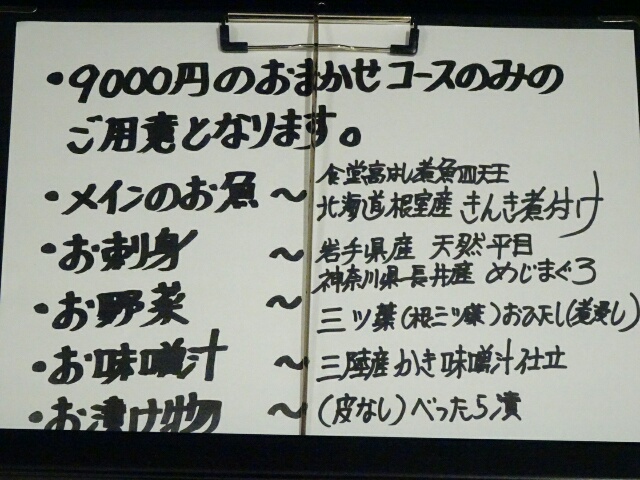 ・9000円のおまかせコースのみの
ご用意となります。
・メインのお魚 〜 食堂高はし煮魚四天王
北海道根室産 きんき煮付け
・お刺身 〜 岩手県産 天然平目
神奈川県長井産 めじまぐろ
・お野菜 〜 三ツ葉(根三ツ葉)おひたし(煮浸し)
・お味噌汁 〜 三陸産かき味噌汁仕立
・お漬け物 〜 (皮なし)べったら漬